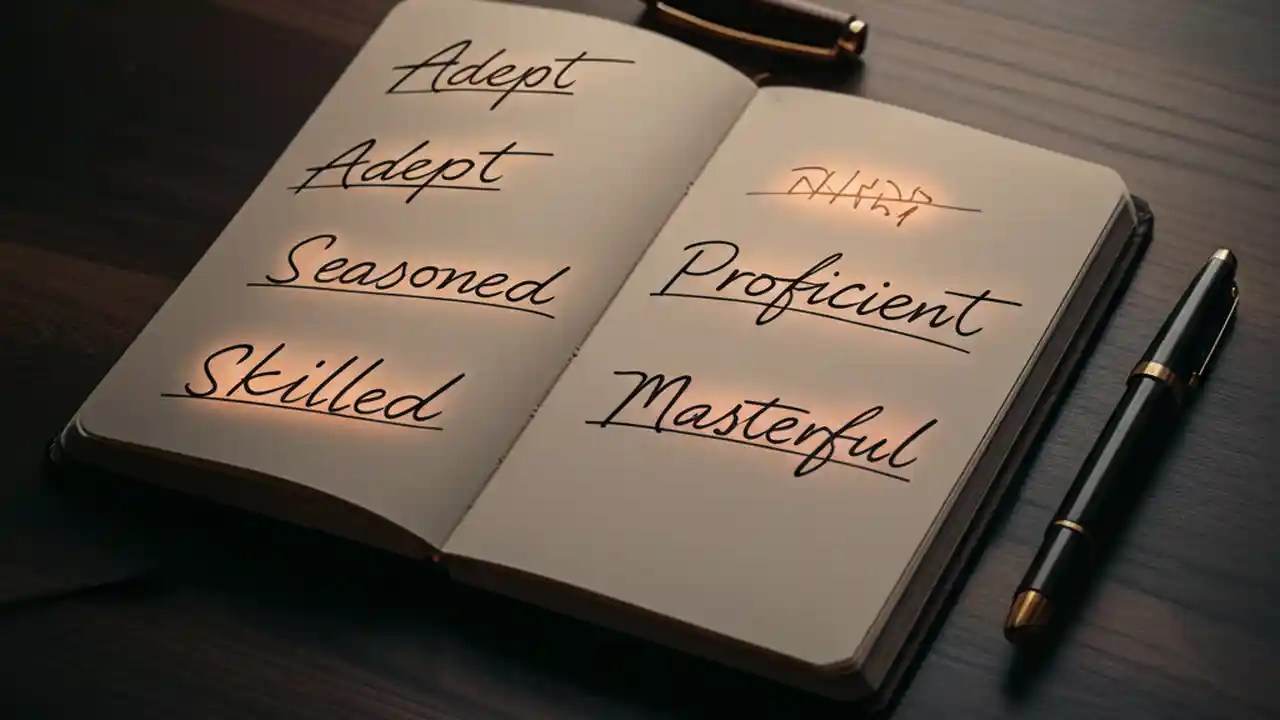 Adept
Adept
Seasoned
Skilled
Proficient
Masterful